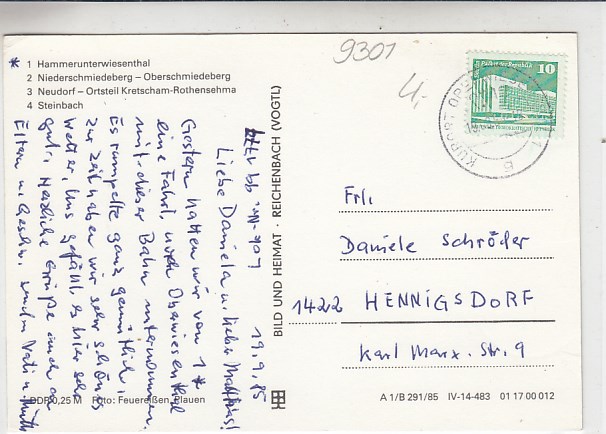 * 1 Hammerunterwiesenthal
2 Niederschmiedeberg – Oberschmiedeberg
3 Neudorf – Ortsteil Kretscham-Rothensehma
4 Steinbach
9301
4,-
Palast der Republik
10
KURORT OBERWIESENTHAL
19.9.85
Liebe Daniela u. lieber Matthias!
Gestern hatten wir von 1*
eine Fahrt nach Oberwiesenthal
mit dieser Bahn unternommen.
Es rumpelte ganz gemütlich.
Zur Zeit haben wir sehr schönes
Wetter. Uns gefällt es hier sehr
gut. Herzliche Grüße auch an
Eltern u. Geschw. von Vati u. Mutti
BILD UND HEIMAT · REICHENBACH (VOGTL)
Frl.
Daniele Schröder
1422 HENNIGSDORF
Karl-Marx-Str. 9
DDR 0,25 M Foto: Feuereißen, Plauen
A 1/B 291/85 IV-14-483 01 17 00 012